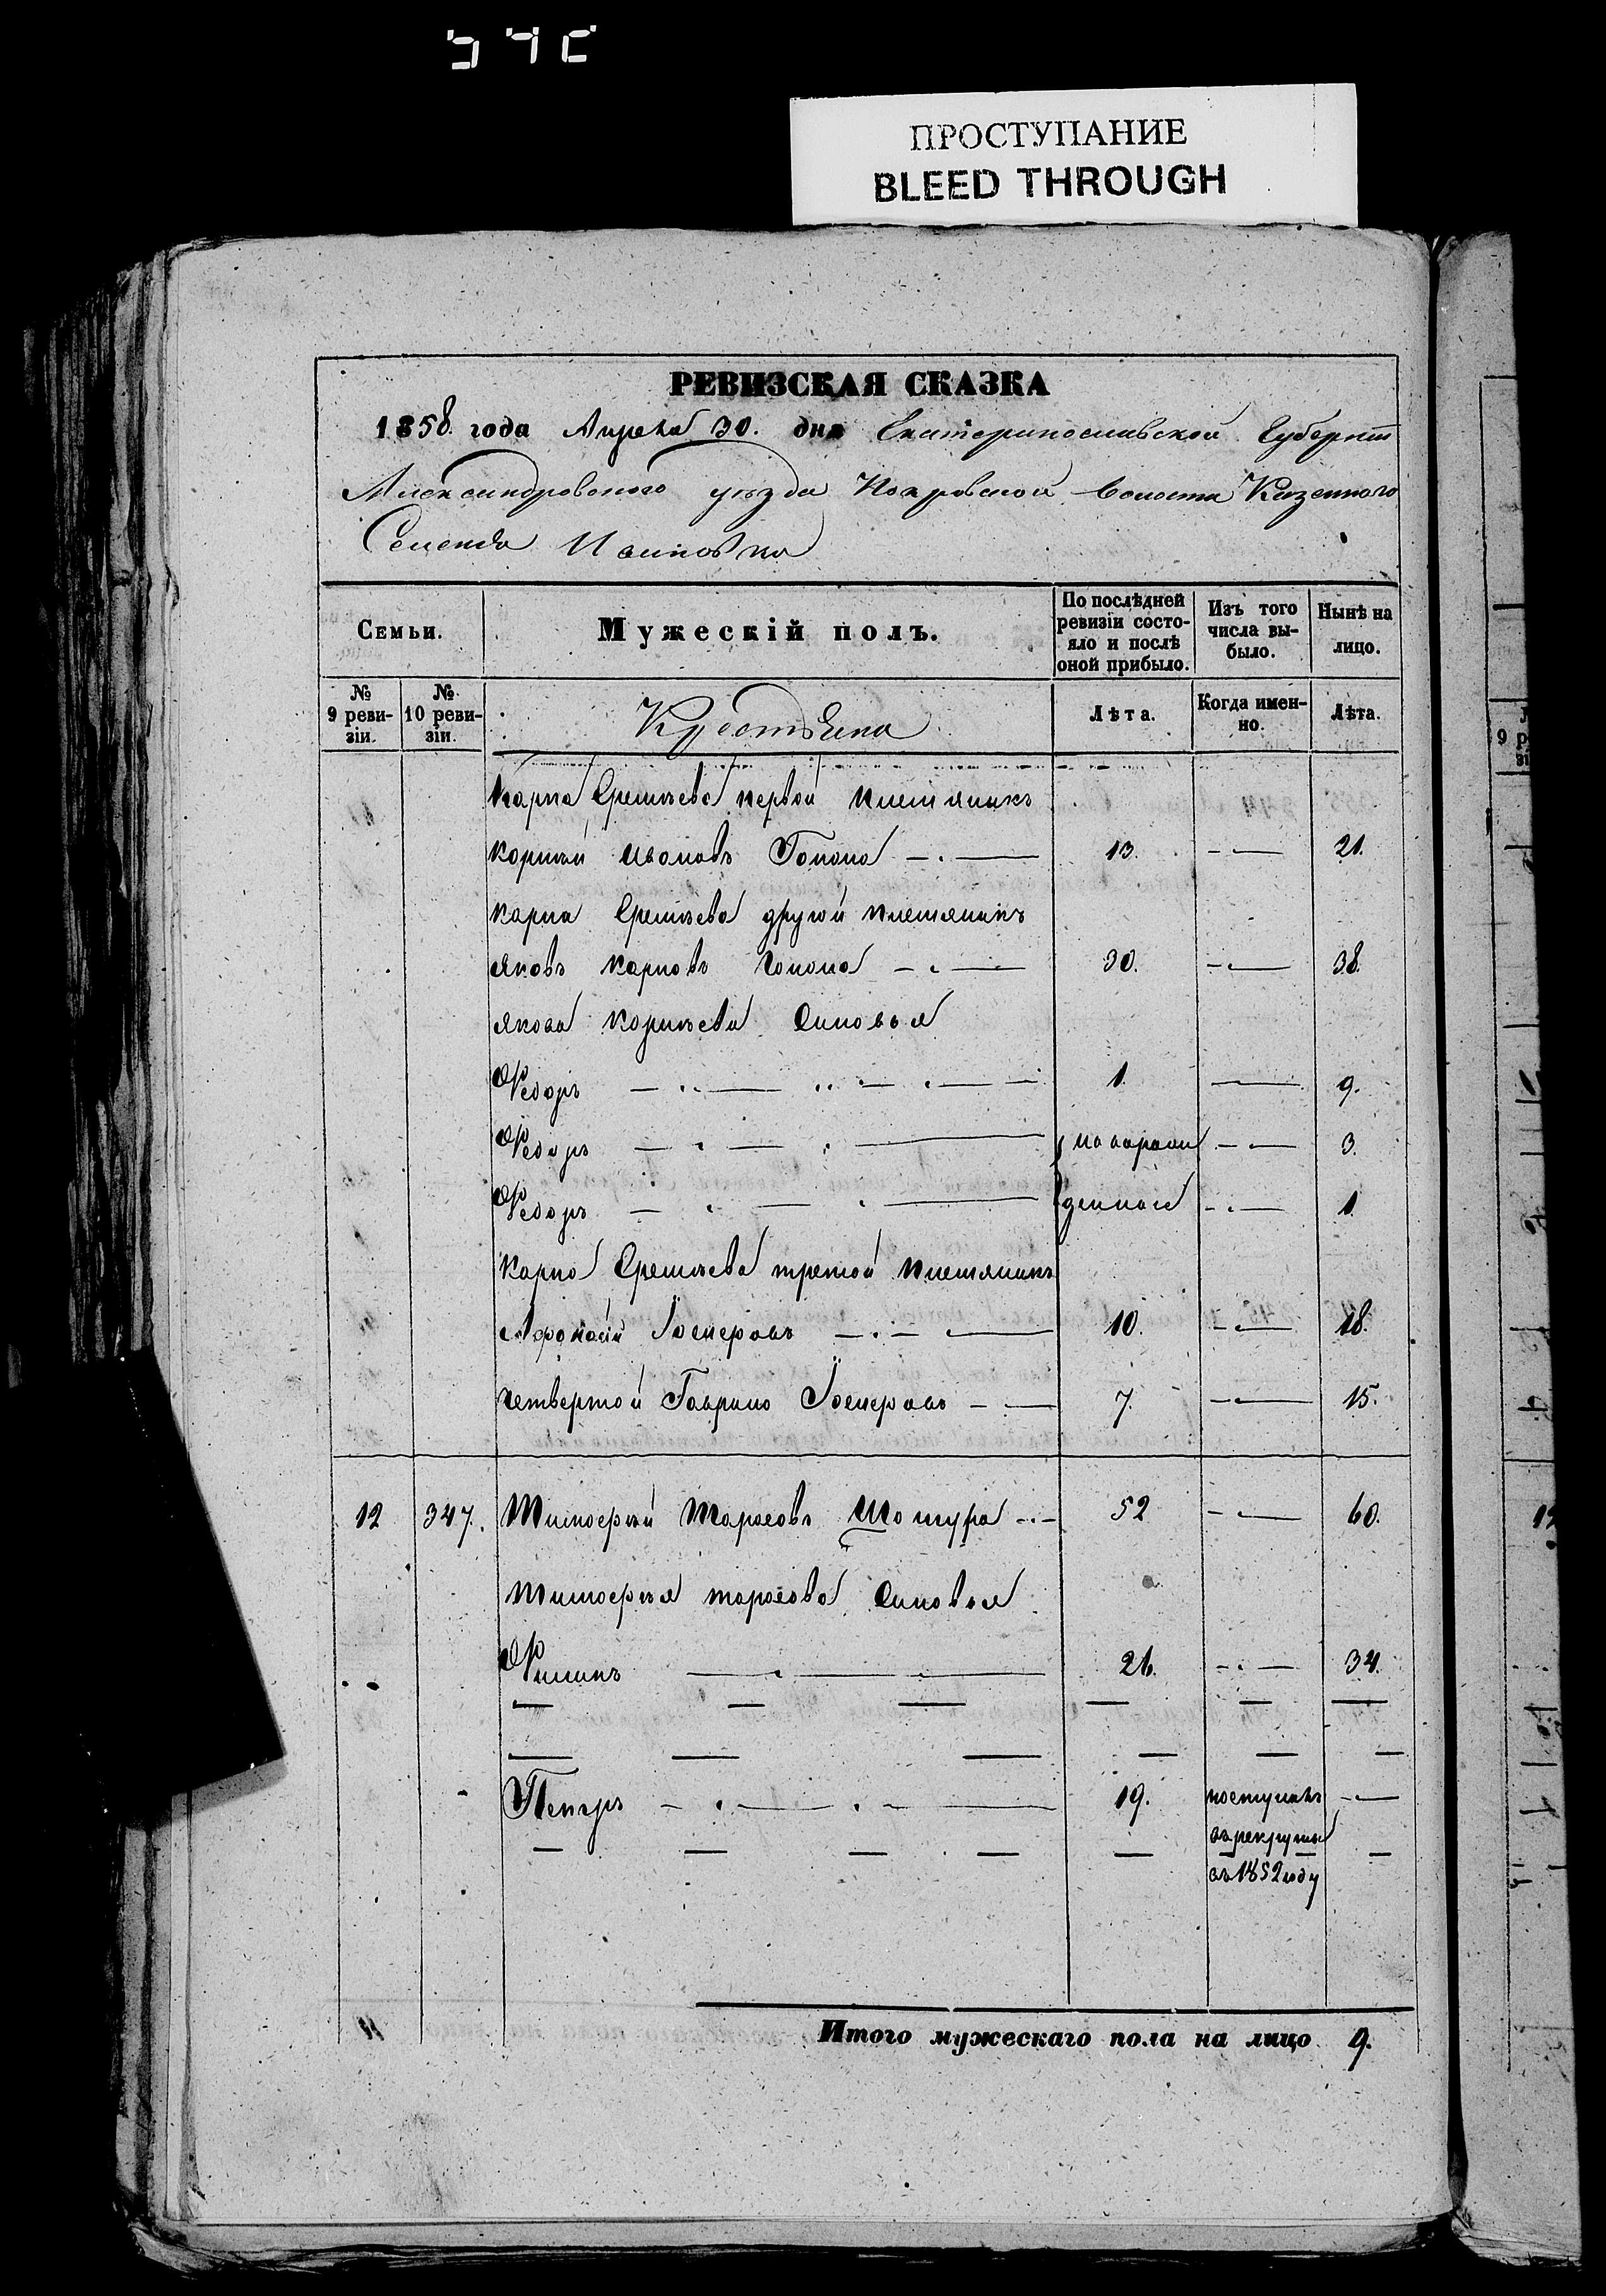 ПРОСТУПАНИЕ
BLEED THROUGH
РЕВИЗСКАЯ СКАЗКА
1858. года Апреля 30. дня Екатеринославской Губернии
Александровского уезда Покровской Волости Казенного
Селения
Семьи.
Мужескій полъ.
По послѣдней ревизіи состояло и послѣ оной прибыло.
Изъ того числа выбыло.
Нынѣ на лицо.
№ 9 ревизіи.
№ 10 ревизіи.
Крестьяне
Лѣта.
Когда именно.
Лѣта.
Карпа Еремѣева первой племяникъ
Корнѣй Ивановъ 13. 21.
Карпа Еремѣева другой племяникъ
Яковъ Карповъ 30. 38.
Якова Корнѣева Сыновья
Федоръ 1. 9.
Федоръ новорож 3.
Федоръ денные 1.
Карпа Еремѣева третой племяникъ
10. 18.
четвертой Гаврило 7. 15.
12 347. Тимофѣй Тарасовъ 52 60.
Тимофѣя тарасова Сыновья
Филипъ 26. 34.
Петръ 19. поступилъ
въ рекруты
въ 1852 году
Итого мужескаго пола на лицо 9.